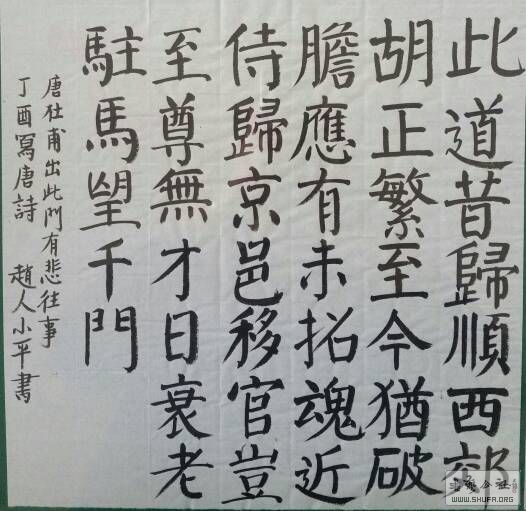 此道昔歸順西郊
胡正繁至今猶破
膽應有未招魂近
侍歸京邑移官豈
至尊無才日衰老
駐馬望千門
唐杜甫出此門有悲往事
丁酉寫唐詩 趙人小平書
WWW.SHUFA.ORG